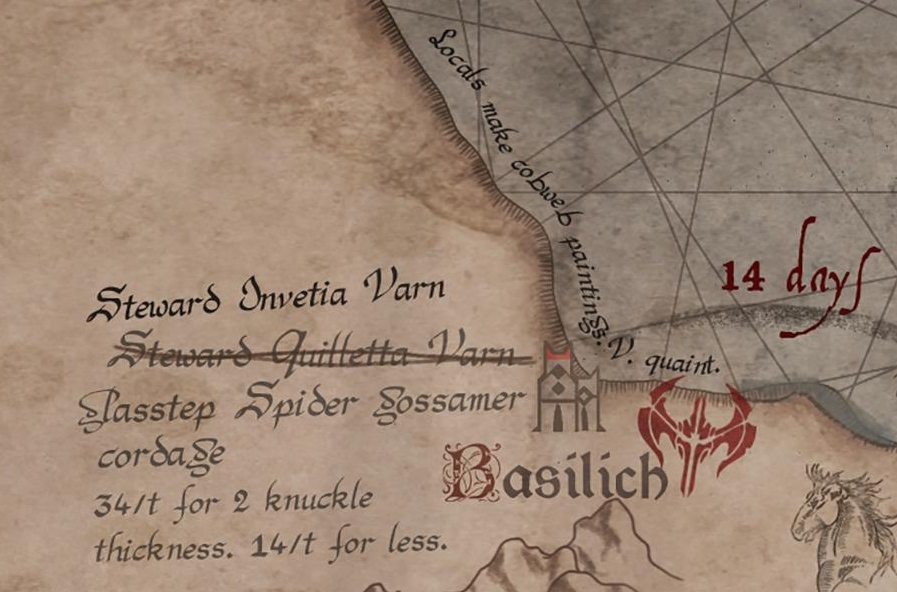 Locals make cobweb paintings. V. quaint.
14 days
Steward Invetia Varn
Steward Quilletta Varn
Glasstep Spider gossamer
cordage
34/t for 2 knuckle
thickness. 14/t for less.
Basilich